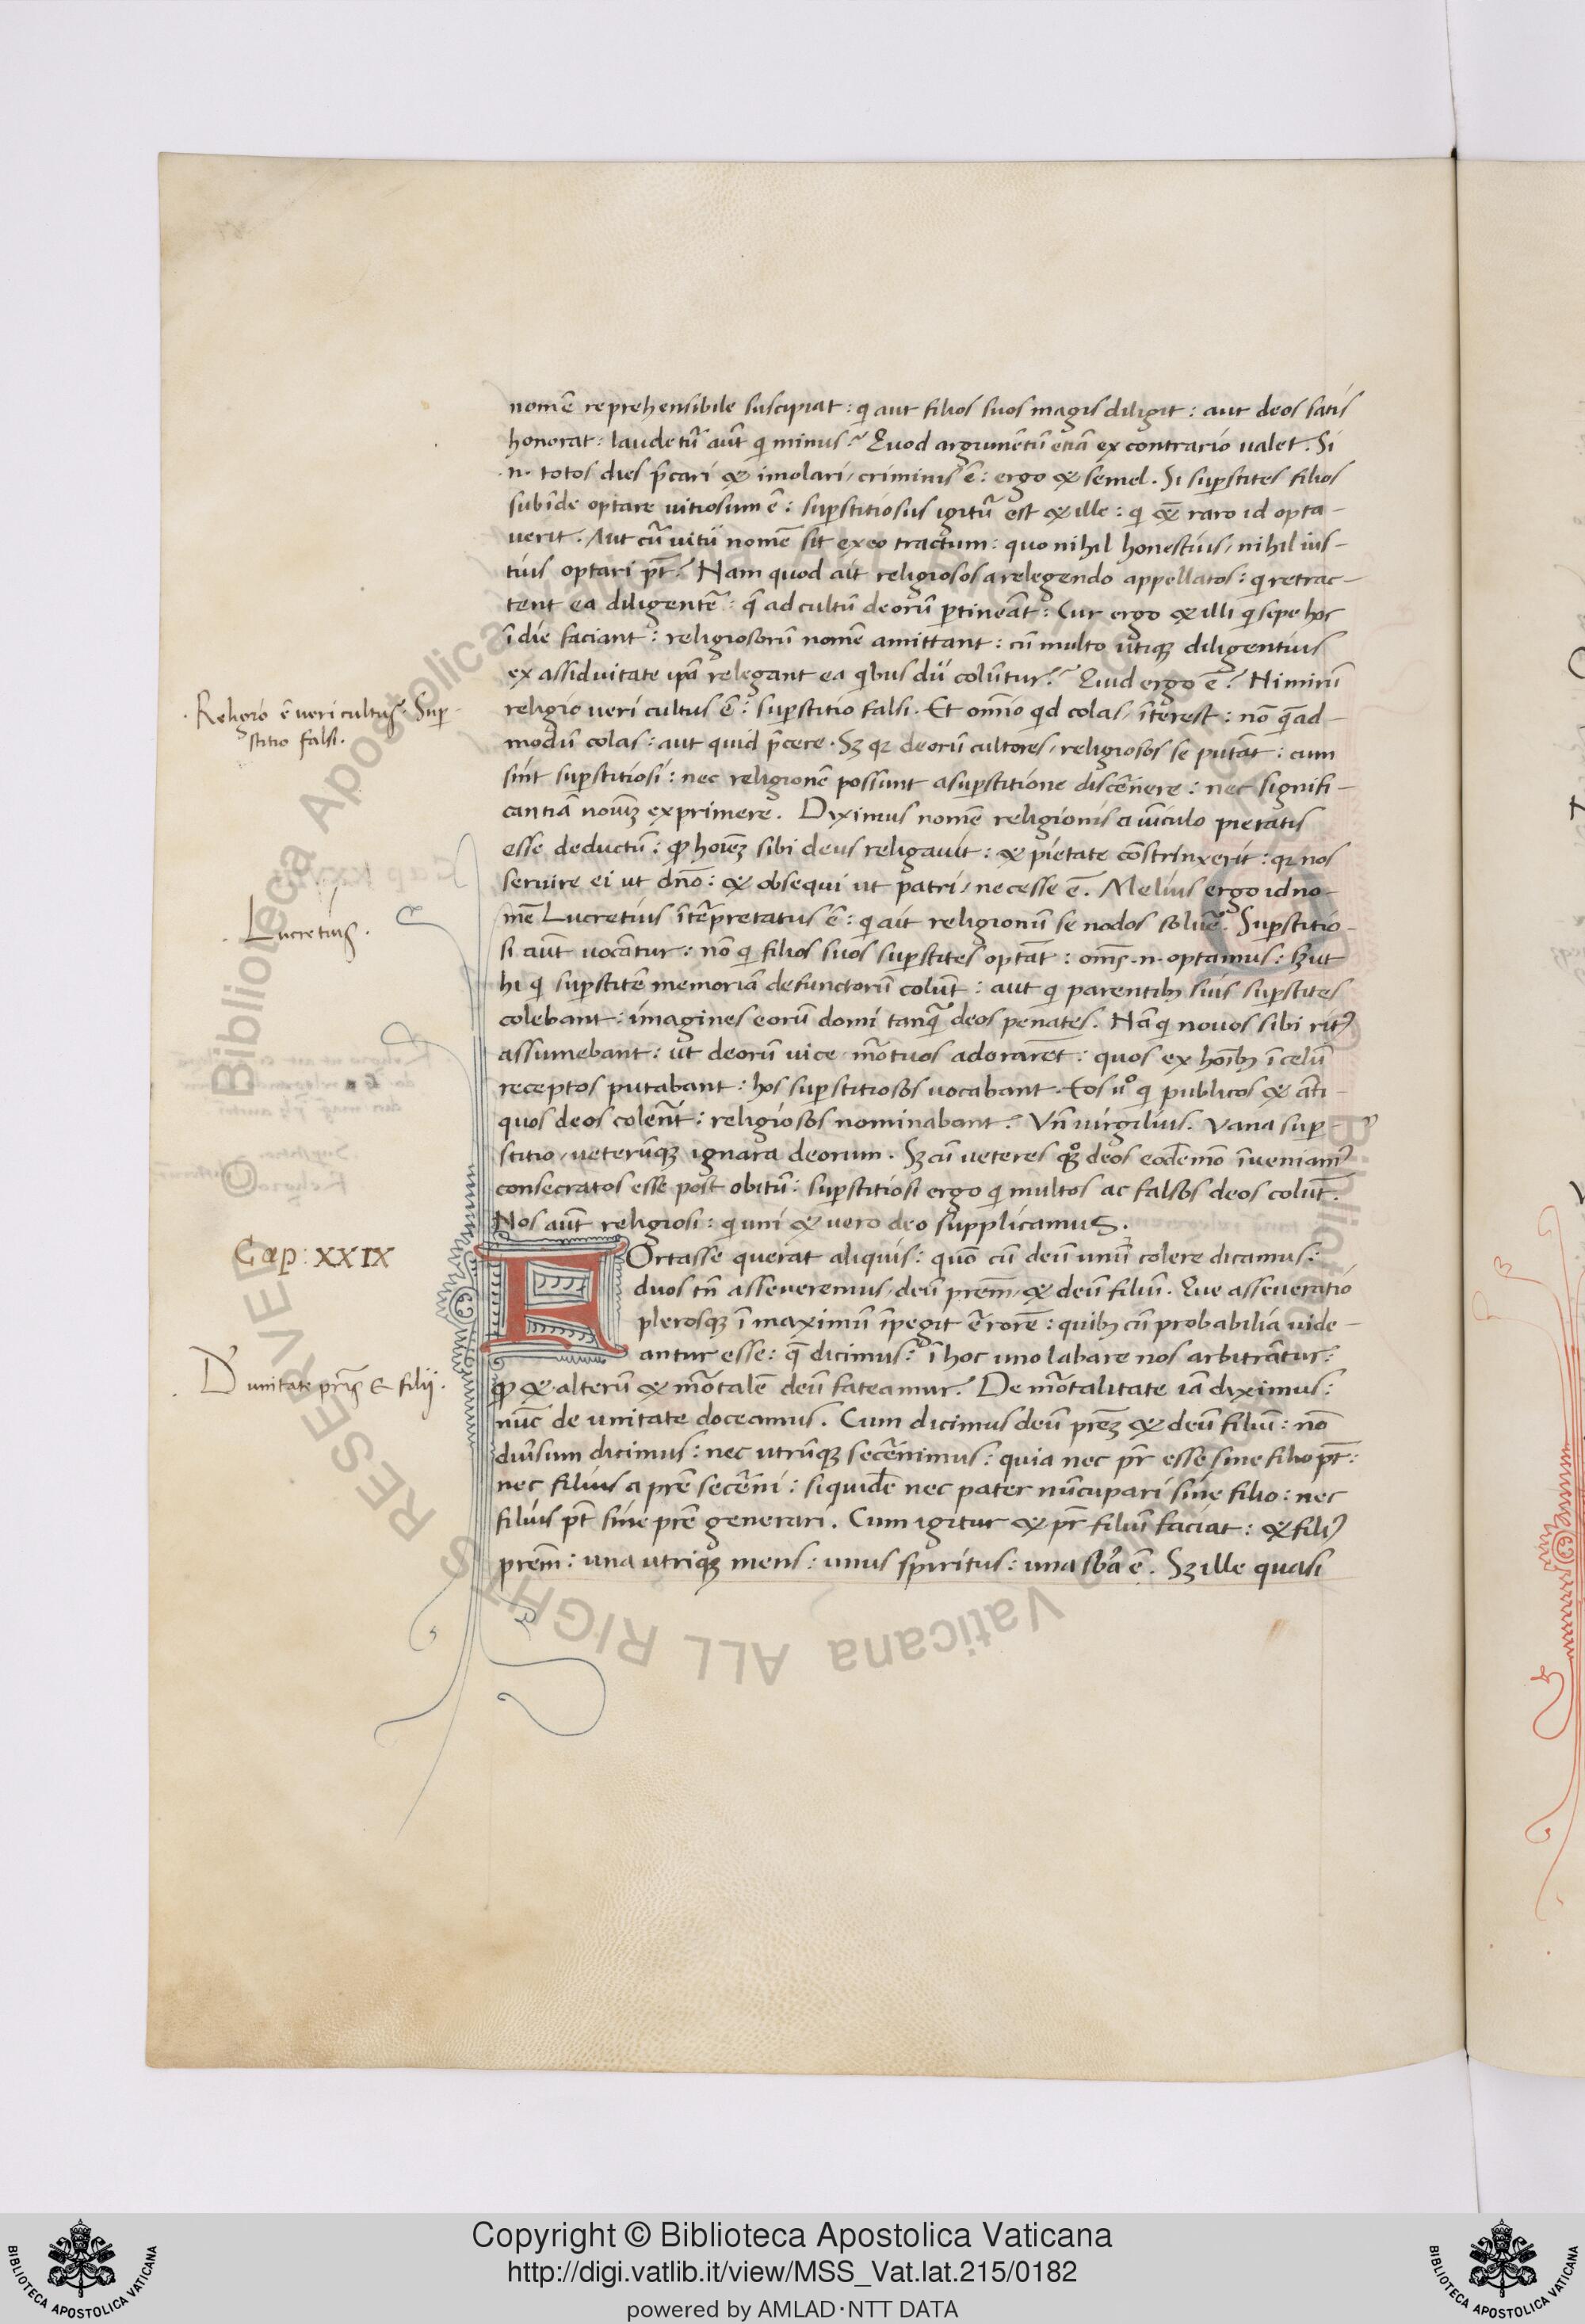 nomē reprehensibile suscipiat : qi aut filios suos magis diligit : aut deos satis
honorat : laudetū aūt qi minus? Quod argumētū etiā ex contrario ualet. Si
.n. totos dies p̄cari & imolari / criminis ē : ergo & semel. Si sup̱stites filios
subīde optare uitiosum ē : sup̱stitiosus igitū est & ille : qi & raro id opta-
verit. Aut cū uitii nomē sit ex eo tractum : quo nihil honestius / nihil ius-
tius optari pt̄? Nam quod ait religiosos a relegendo appellatos : qi retrac-
tent ea diligentē : q̄ ad cultū deorū p̱tineāt : Cur ergo & illi qi sepe hoc
ī die faciant : religiosorū nomē amittant : cū multo utiqȝ diligentius
ex assiduitate ip̄a relegant ea qibus dii colūtur? Quid ergo ē? Nimirū
religio ueri cultus ē : sup̱stitio falsi. Et om̄io qid colas / īterest : nō quēad-
modū colas : aut quid p̄cere. Sȝ qꝛ deorū cultores / religiosos se putāt : cum
sint sup̱stitiosi : nec religionē possunt a sup̱stitione discēnere : nec signifi-
cantiā nōīuȝ exprimere. Diximus nomē religionis a uīculo pietatis
esse deductū : ꝙ hoīeȝ sibi deus religauit : & pietate cōstrinxerit : qꝛ nos
seruire ei ut dn̄o : & obsequi ut patri / necesse ē. Melius ergo id no-
mē Lucretius ītēpretatus ē : qi ait religionū se nodos soluē. Sup̱stitio-
si aūt uocātur : nō qi filios suos sup̱stites optāt : om̄s .n. optamus : Sȝ aut
hi qi sup̱stitē memoriā defunctorū colūt : aut qi parentibȝ suis sup̱stites
colebant : imagines eorū domi tanqā deos penates. Nā qi nouos sibi ritꝰ
assumebant : ut deorū uice mōtuos adorarēt : quos ex hoībȝ ī celū
receptos putabant : hos sup̱stitiosos uocabant. Eos uº qi publicos & āti-
quos deos colerēt : religiosos nominabant. Vn̄ uirgilius. Vana sup̱-
stitio / ueterūqȝ ignara deorum. Sȝ cū ueteres qoqȝ deos eodē mō īueniamꝰ
consecratos esse post obitū : sup̱stitiosi ergo qi multos ac falsos deos colūt.
Nos aūt religiosi : qi uni & uero deo supplicamus.
FOrtasse querat aliquis : quō cū deū unū colere dicamus :
duos tn̄ asseueremus / deū prem̄ / & deū filiū. Que asseueratio
plerosqȝ ī maximū īpegit ērorē : quibȝ cū probabilia uide-
antur esse : q̄ dicimus : ī hoc uno labare nos arbitrātur :
ꝙ & alterū & mōtalē deū fateamur. De mōtalitate iā diximus :
nūc de unitate doceamus. Cum dicimus deū preȝ & deū filiū : nō
diūsum dicimus : nec utrūqȝ secēnimus : quia nec pr̄ esse sine filio pt̄ :
nec filius a prē secēni : siquidē nec pater nūcupari sine filio : nec
filius pt̄ sine prē generari. Cum igitur & pr̄ filiū faciat : & filiꝰ
prem̄ : una utriqȝ mens : unus spiritus : una sb̄a ē. Sȝ ille quasi
. Religio ē ueri cultus. Sup̱-
stitio falsi.
. Lucretius.
Cap: XXIX
. D unitate pris̄ & filij.
Copyright © Biblioteca Apostolica Vaticana
http://digi.vatlib.it/view/MSS_Vat.lat.215/0182
powered by AMLAD·NTT DATA
BIBLIOTECA APOSTOLICA VATICANA
BIBLIOTECA APOSTOLICA VATICANA
© Biblioteca Apostolica Vaticana ALL RIGHTS RESERVED